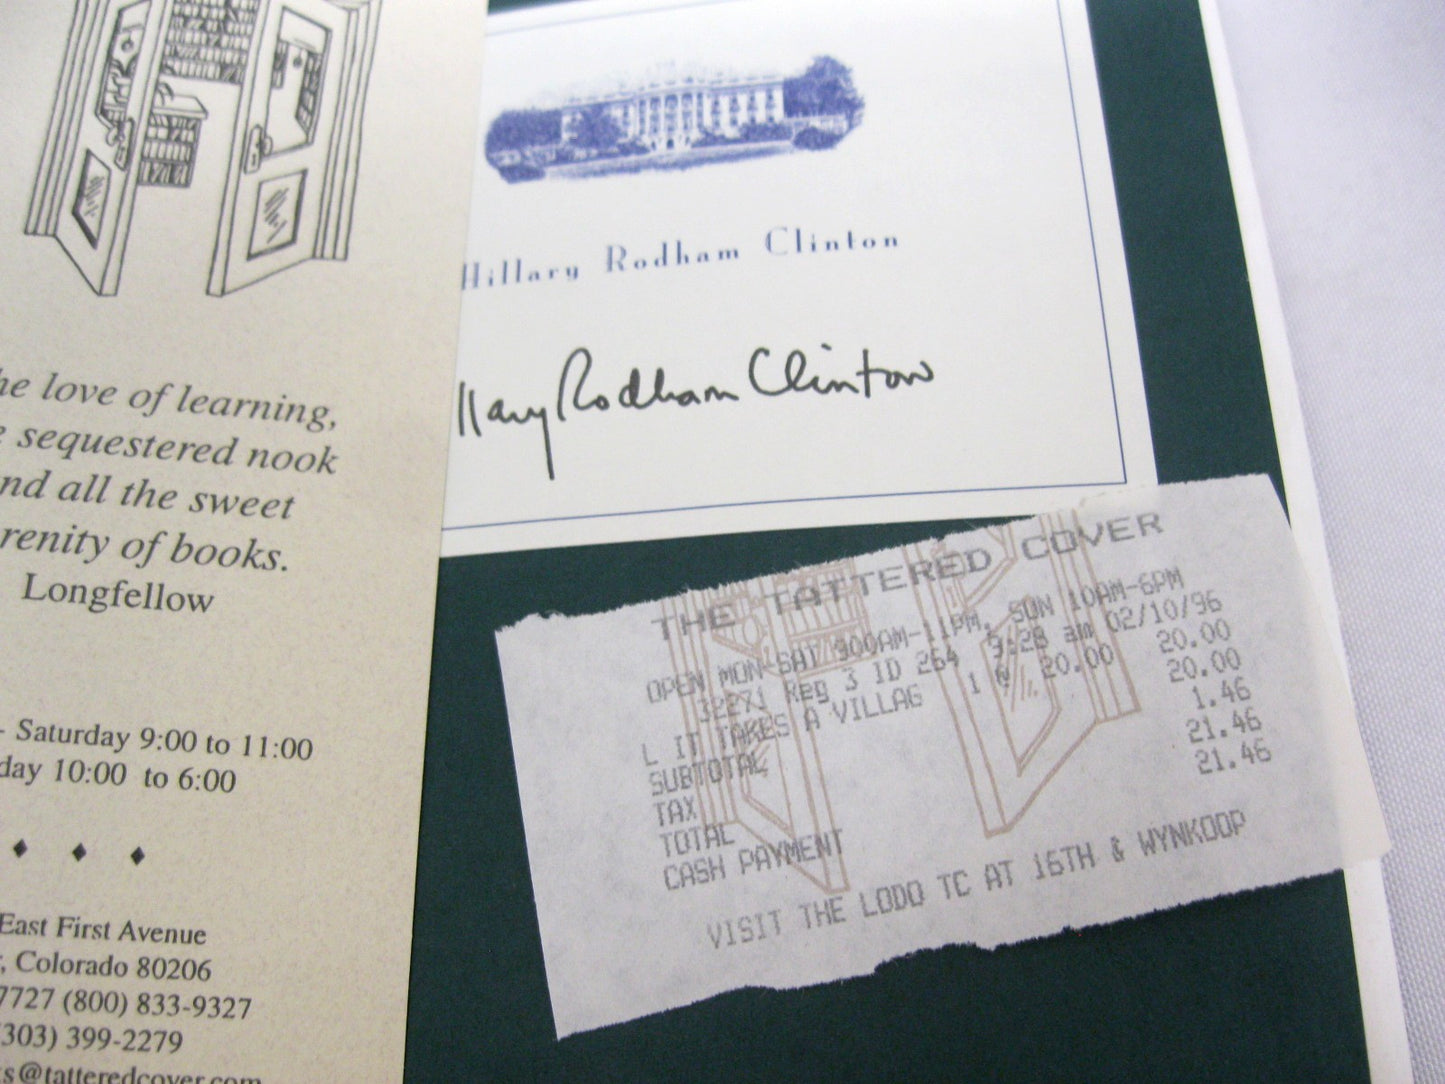 he love of learning,
sequestered nook
nd all the sweet
renity of books.
Longfellow
- Saturday 9:00 to 11:00
day 10:00 to 6:00
East First Avenue
, Colorado 80206
7727 (800) 833-9327
(303) 399-2279
s@tatteredcover.com
Hillary Rodham Clinton
llary Rodham Clinton
THE TATTERED COVER
OPEN MON-SAT 900AM-11PM, SUN 10AM-6PM
32271 Reg 3 ID 264 9:28 am 02/10/96
L IT TAKES A VILLAG 1 N 20.00 20.00
SUBTOTAL 20.00
TAX 1.46
TOTAL 21.46
CASH PAYMENT 21.46
VISIT THE LODO TC AT 16TH & WYNKOOP